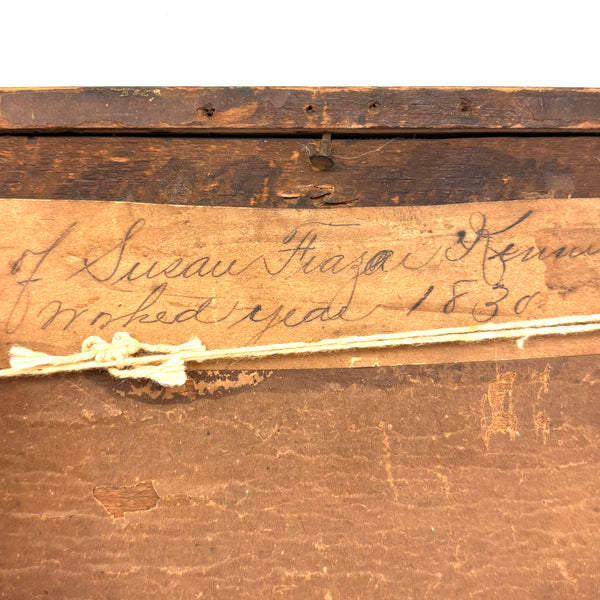 of Susan Frazar Kenn
Worked year 1830